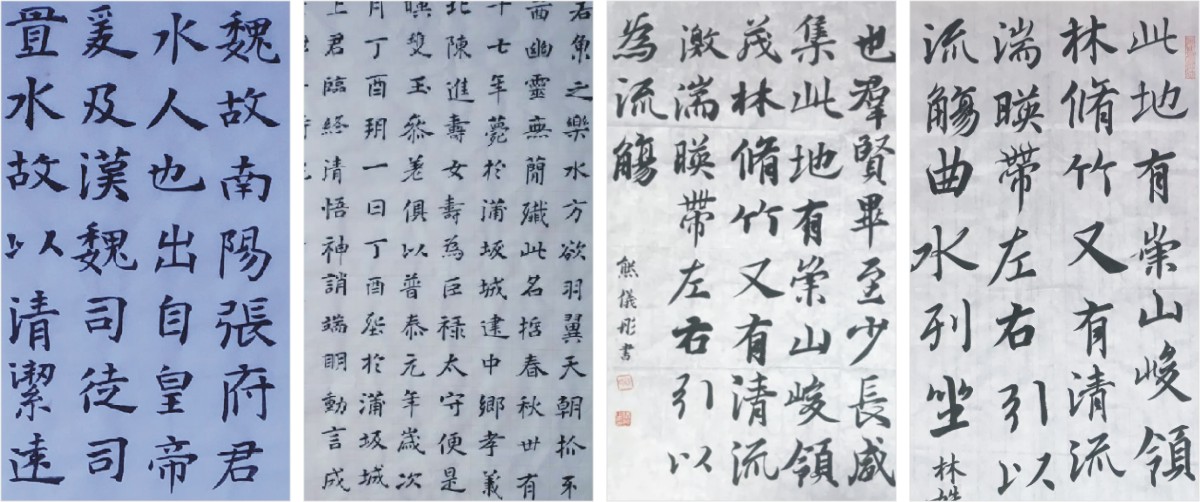 魏故南陽張府君
水人也出自皇帝
爰及漢魏司徒司
置水故以清潔遠
若魚之樂水方欲羽翼天朝抓牙
啚幽靈無簡殲此名悊春秋卅有
十七年薨於蒲坂城建中鄉孝義
北陳進壽女壽為巨祿太守便是
暎雙玉叅差俱以普泰元年歲次
月丁酉玥一日丁酉塟於蒲坂城
上君臨終清悟神誚端明動言成
也羣賢畢至少長咸
集此地有崇山峻領
茂林脩竹又有清流
激湍暎帶左右引以
為流觴
熊儀彤書
此地有崇山峻領
林脩竹又有清流
湍暎帶左右引以
流觴曲水列坐
林